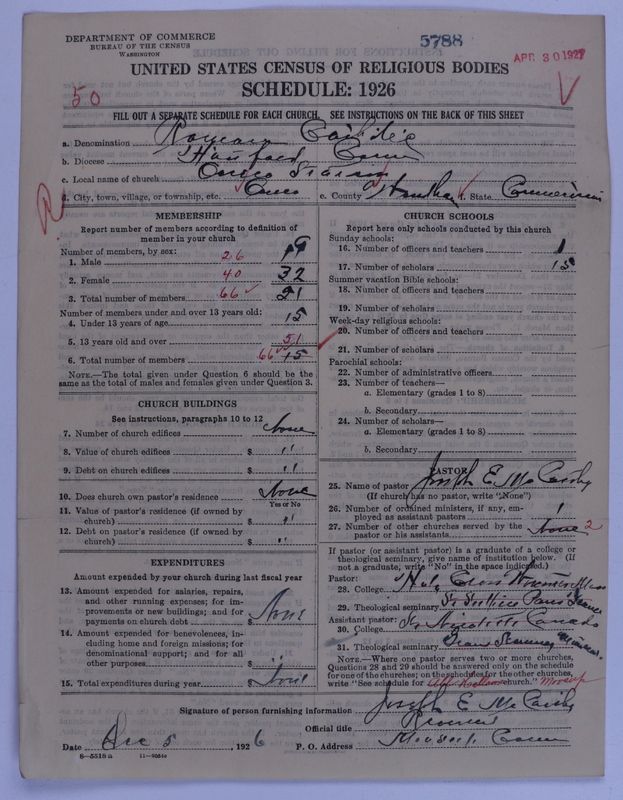 DEPARTMENT OF COMMERCE
BUREAU OF THE CENSUS
WASHINGTON
5788
APR 30 1927
UNITED STATES CENSUS OF RELIGIOUS BODIES
SCHEDULE: 1926
50
FILL OUT A SEPARATE SCHEDULE FOR EACH CHURCH. SEE INSTRUCTIONS ON THE BACK OF THIS SHEET
a. Denomination
b. Diocese Hartford Conn
c. Local name of church
d. City, town, village, or township, etc. e. County Windham f. State. Connecticut
MEMBERSHIP
Report number of members according to definition of
member in your church
Number of members, by sex:
1. Male 26 19
2. Female 40 32
3. Total number of members 66 ✓
Number of members under and over 13 years old:
4. Under 13 years of age 15
5. 13 years old and over 51
6. Total number of members 66 ✓ 15
NOTE.—The total given under Question 6 should be
same as the total of males and females given under Question 3.
CHURCH BUILDINGS
See instructions, paragraphs 10 to 12
7. Number of church edifices None
8. Value of church edifices $ "
9. Debt on church edifices $ "
10. Does church own pastor's residence None
Yes or No
11. Value of pastor's residence (if owned by
church) $ "
12. Debt on pastor's residence (if owned by
church) $ "
EXPENDITURES
Amount expended by your church during last fiscal year
13. Amount expended for salaries, repairs,
and other running expenses; for im-
provements or new buildings; and for
payments on church debt $ None
14. Amount expended for benevolences, in-
cluding home and foreign missions; for
denominational support; and for all
other purposes $ "
15. Total expenditures during year $ None
CHURCH SCHOOLS
Report here only schools conducted by this church
Sunday schools:
16. Number of officers and teachers 1
17. Number of scholars 15
Summer vacation Bible schools:
18. Number of officers and teachers
19. Number of scholars
Week-day religious schools:
20. Number of officers and teachers
21. Number of scholars
Parochial schools:
22. Number of administrative officers
23. Number of teachers—
a. Elementary (grades 1 to 8)
b. Secondary
24. Number of scholars—
a. Elementary (grades 1 to 8)
b. Secondary
PASTOR
25. Name of pastor Joseph E. McCarthy
(If church has no pastor, write "None")
26. Number of ordained ministers, if any, em-
ployed as assistant pastors 1
27. Number of other churches served by the
pastor or his assistants None 2
If pastor (or assistant pastor) is a graduate of a college or
theological seminary, give name of institution below. (If
not a graduate, write "No" in the space indicated.)
Pastor:
28. College Holy Cross Worcester Mass
29. Theological seminary St Sulpice Paris France
Assistant pastor:
30. College Canada
31. Theological seminary
NOTE.—Where one pastor serves two or more churches,
Questions 28 and 29 should be answered only on the schedule
for one of the churches; on the schedules for the other churches,
write "See schedule for All Hallows church." Moosup
Signature of person furnishing information Joseph E. McCarthy
Official title
Date Dec 5 1926 P. O. Address Moosup Conn
6—5518a 11—9051a